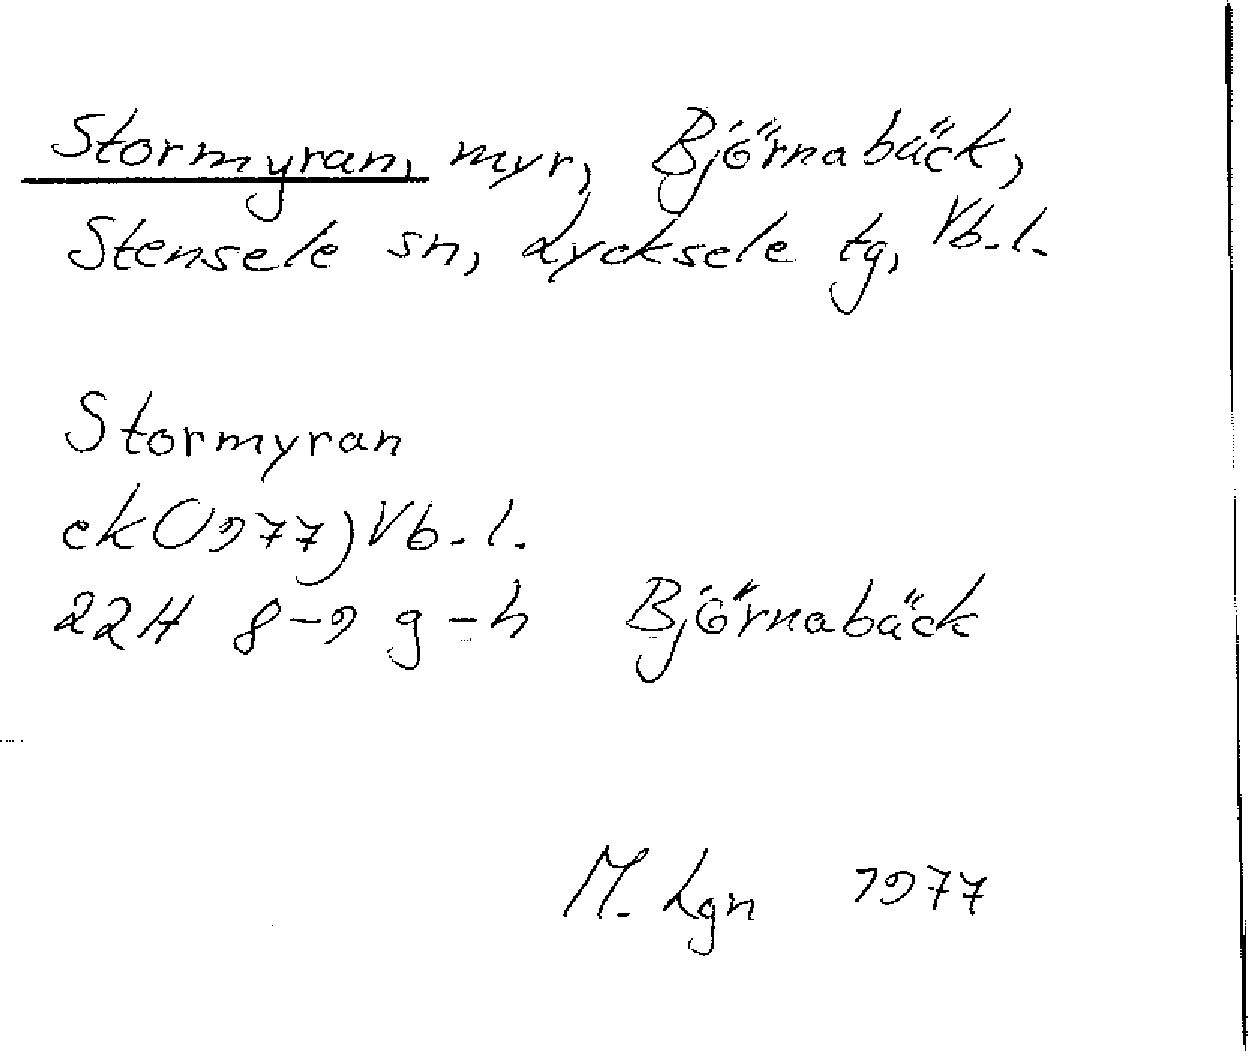 Stormyran, myr, Björnabäck,
Stensele sn, Lycksele tg, Vb.l.
Stormyran
ek (1977) Vb.l.
22H 8-9 g-h Björnabäck
M. Lgn 1977